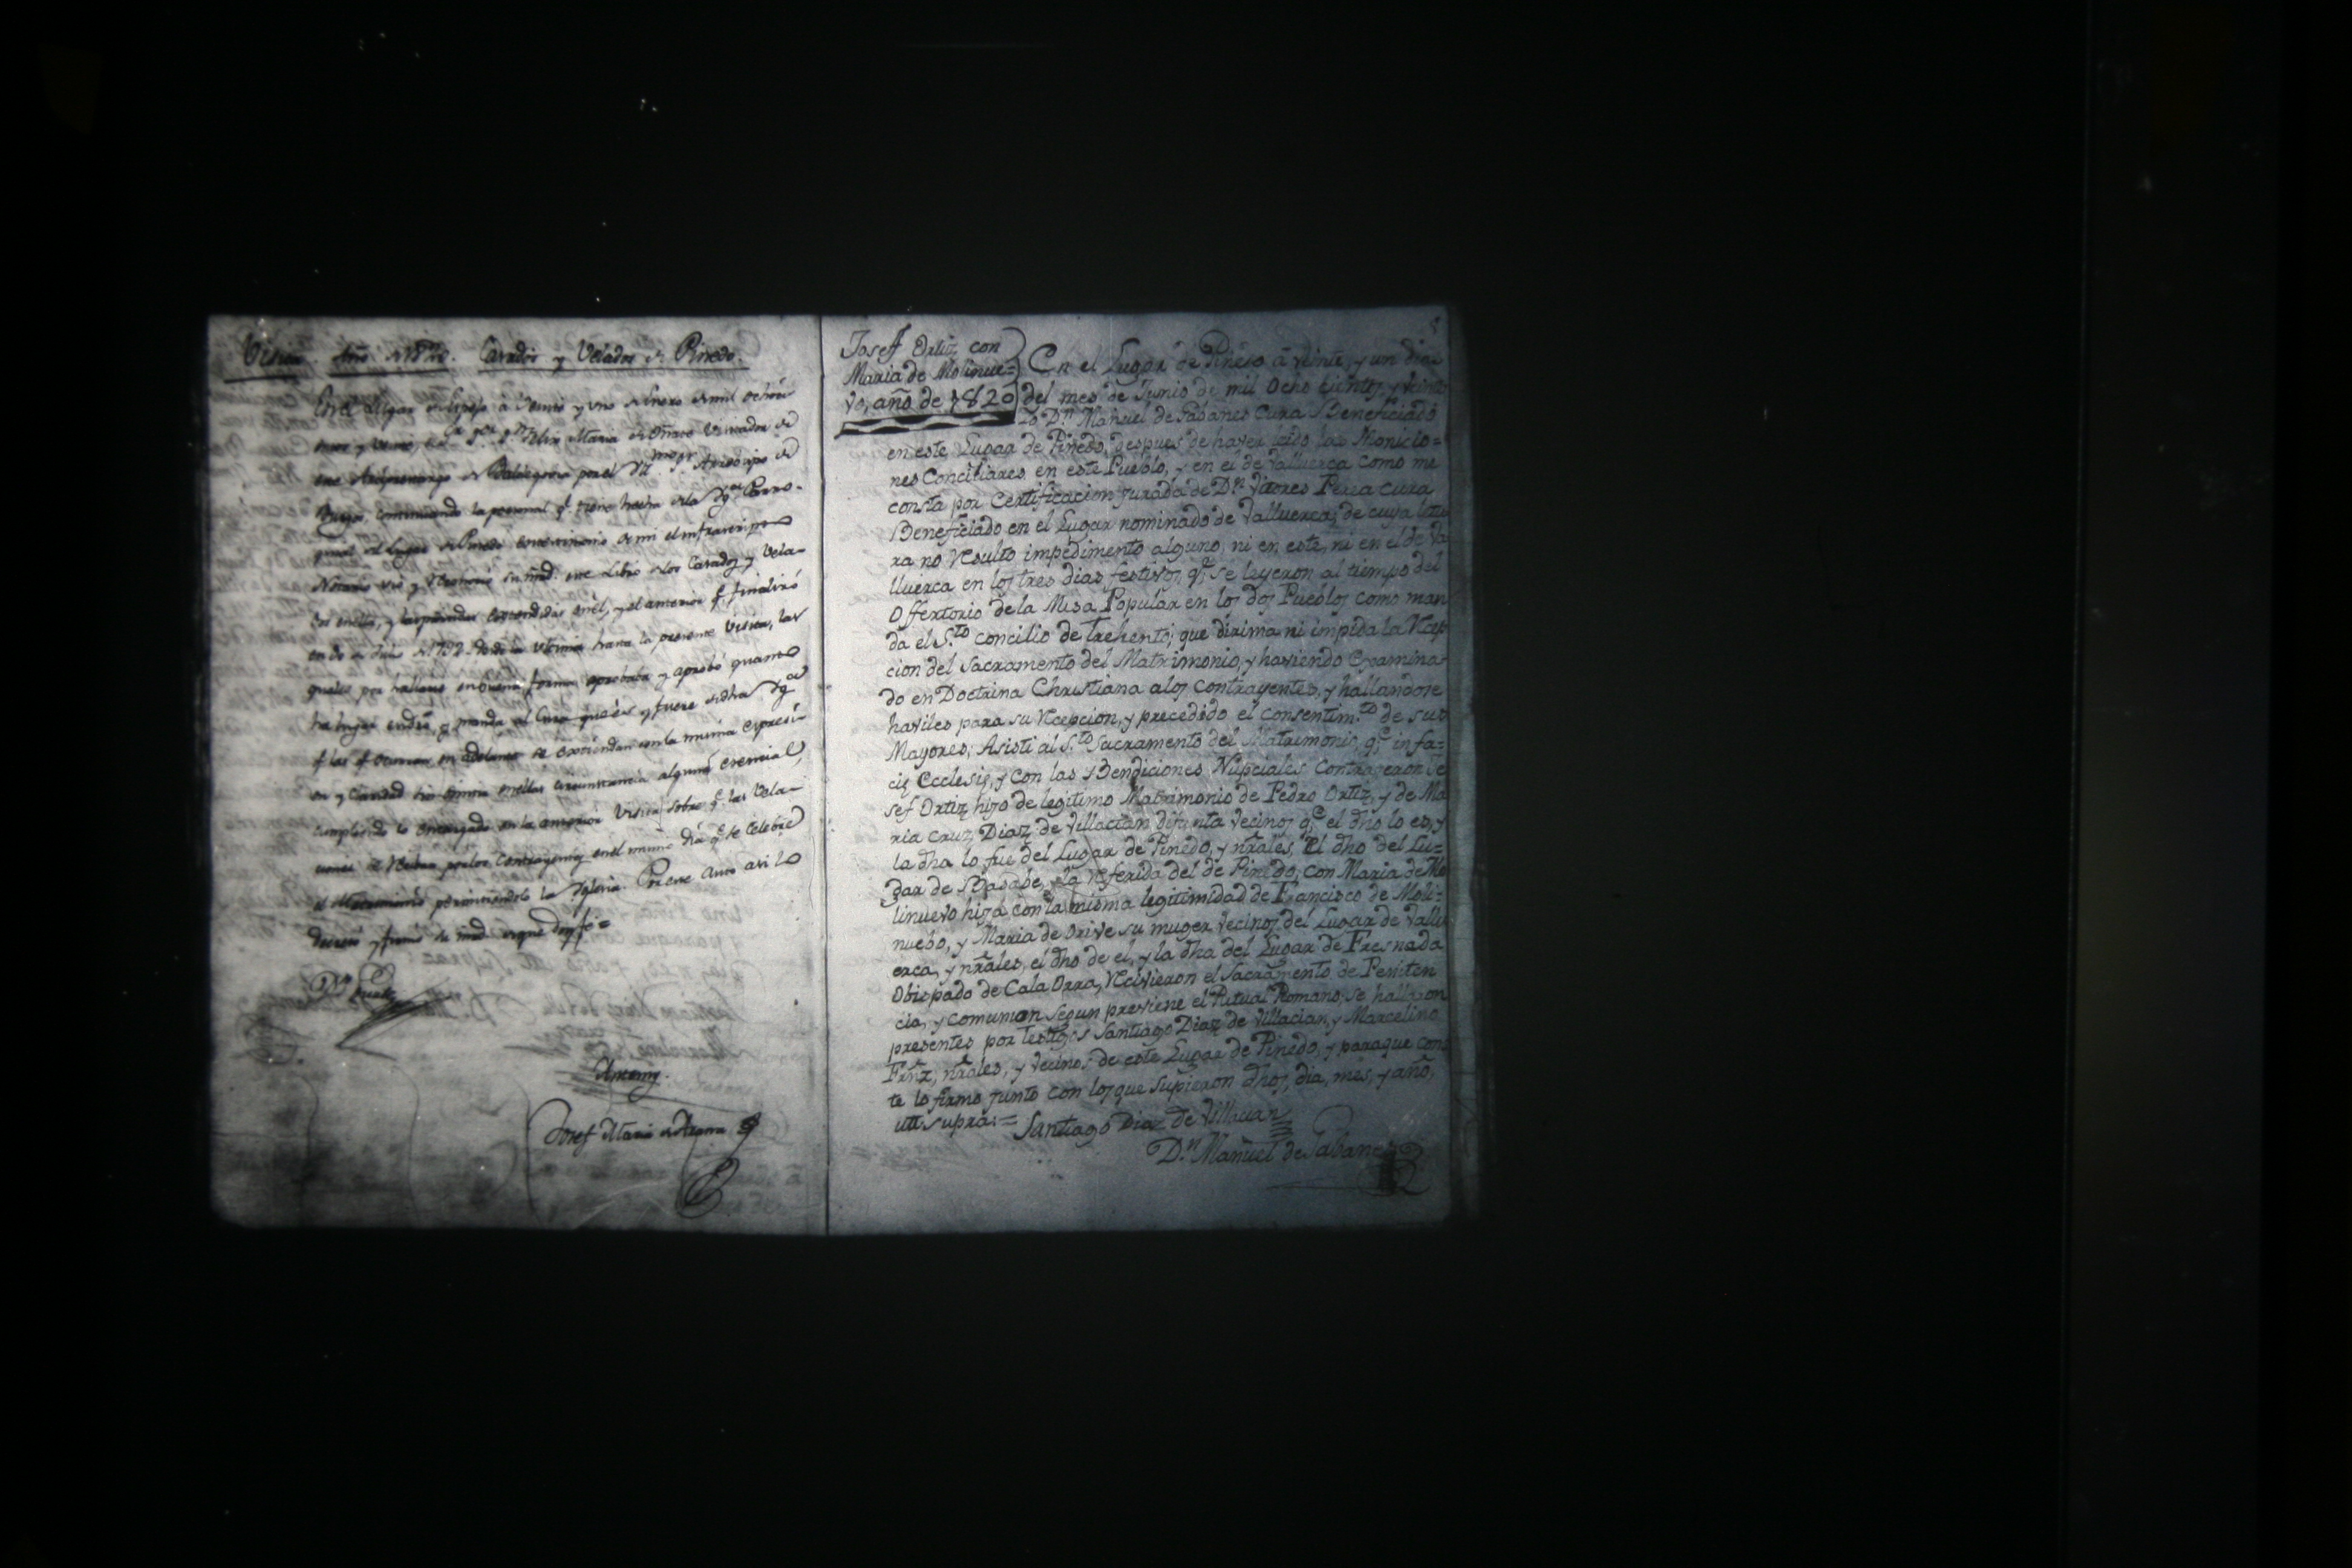 Visita. Año de 1820. Casados y Velados de Pinedo.
En el Lugar de Espejo à veinte y uno de Enero de mil ochoci
entos y veinte, el Sr. Dn. Felix Maria de Visitador de
este Arciprestazgo de Baldegovia por el Yllmo. Sr. Arzobispo de
Burgos, continuando la personal q.e tiene hecha de la Yg.a Parro-
quial del Lugar de Pinedo con testimonio de mi el infrascripto
Notario vio y reconoció su mrd. este Libro de los Casados y Vela-
dos en ella, y las partidas contenidas en el, y el anterior q.e finalizó
en de Julio de desde la ultima hasta la presente Visita, las
quales por hallarse en buena forma aprobaba y aprobó quanto
ha lugar en dro, y manda al Cura que es y fuere de dha Yg.a
q.e las q.e ocurran en adelante se extiendan con la misma expresi-
on y claridad sin omitir en ellas circunstancia alguna esencial,
cumpliendo lo encargado en la anterior Visita sobre q.e las Vela-
ciones se reciban por los Contrayentes en el mismo dia q.e se celebre
el Matrimonio permitiendolo la Yglesia. Por este Auto asi lo
decretó y firmó su mrd de que doy fe =
Antemy.
Josef Maria de
Josef Ortiz, con
Maria de Molinue=
vo, año de 1820
En el Lugar de Pinedo à veinte, y un dias
del mes de Junio de mil ocho cientos, y veinte
Yo D.n Manuel de Pabanes Cura Beneficiado
en este Lugar de Pinedo, despues de haver leido las Monicio=
nes Conciliares en este Pueblo, y en el de Valluerca como me
consta por Certificacion jurada de D.n Vitores Perea cura
Beneficiado en el Lugar nominado de Valluerca; de cuya lectu
ra no resulto impedimento alguno, ni en este, ni en el de Va
lluerca en los tres dias festivos q.e se leyeron al tiempo del
Offertorio de la Misa Popular en los dos Pueblos como man
da el S.to concilio de Trehento; que dirima ni impida la recep
cion del Sacramento del Matrimonio, y haviendo examina-
do en Doctrina Christiana a los contrayentes, y hallandose
haviles para su recepcion, y precedido el consentim.to de sus
Mayores; Asisti al S.to Sacramento del Matrimonio, q.e in fa=
cie Ecclesie, y con las Bendiciones Nupciales contrageron Jo
sef Ortiz hijo de legitimo Matrimonio de Pedro Ortiz, y de Ma
ria Cruz Diaz de Villacian difunta vecinos q.e el dho lo es, y
la dha lo fue del Lugar de Pinedo, y nrales, el dho del Lu=
gar de Basabe, y la referida del de Pinedo, con Maria de Mo
linuevo hija con la misma legitimidad de Francisco de Moli=
nuebo, y Maria de Orive su muger vecinos del Lugar de Vallu
erca, y nrales, el dho de el, y la dha del Lugar de Fresneda
Obispado de Cala Orra, recivieron el Sacramento de Peniten
cia, y comunion segun previene el Ritual Romano; se hallaron
presentes por testigos Santiago Diaz de Villacian, y Marcelino
Frnz, nrales, y vecinos de este Lugar de Pinedo, y paraque cons
te lo firmo junto con los que supieron dhos, dia, mes, y año,
utt supra:=
Santiago Diaz de Villacian
D.n Manuel de Pabanes